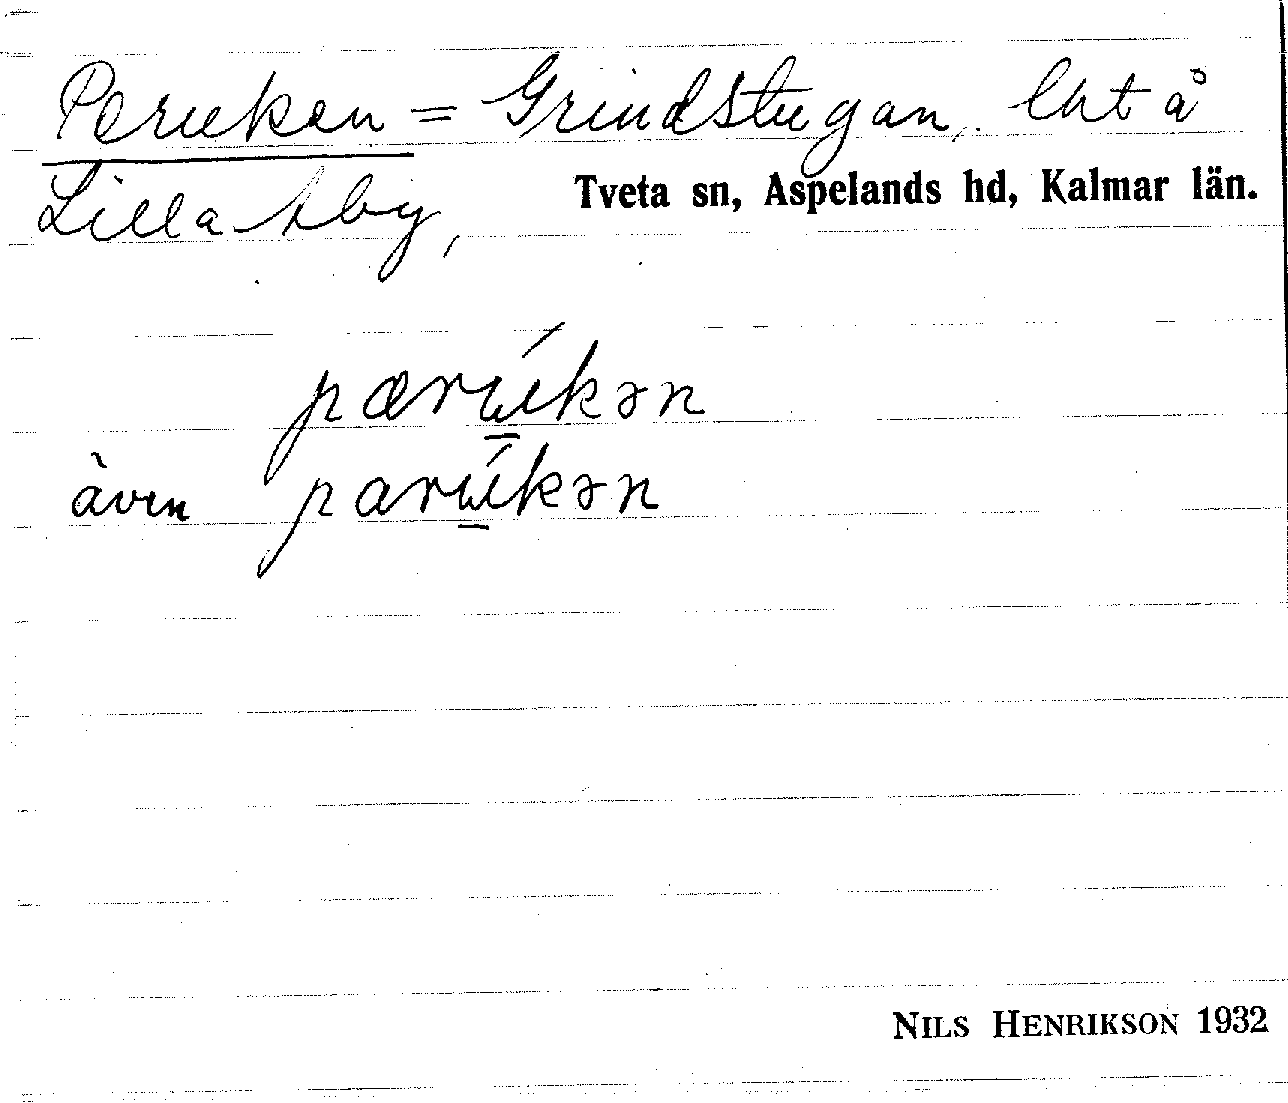 Peruken = Grindstugan, lht å
Lilla Aby,
Tveta sn, Aspelands hd, Kalmar län.
pærúkən
även parúkən
NILS HENRIKSON 1932